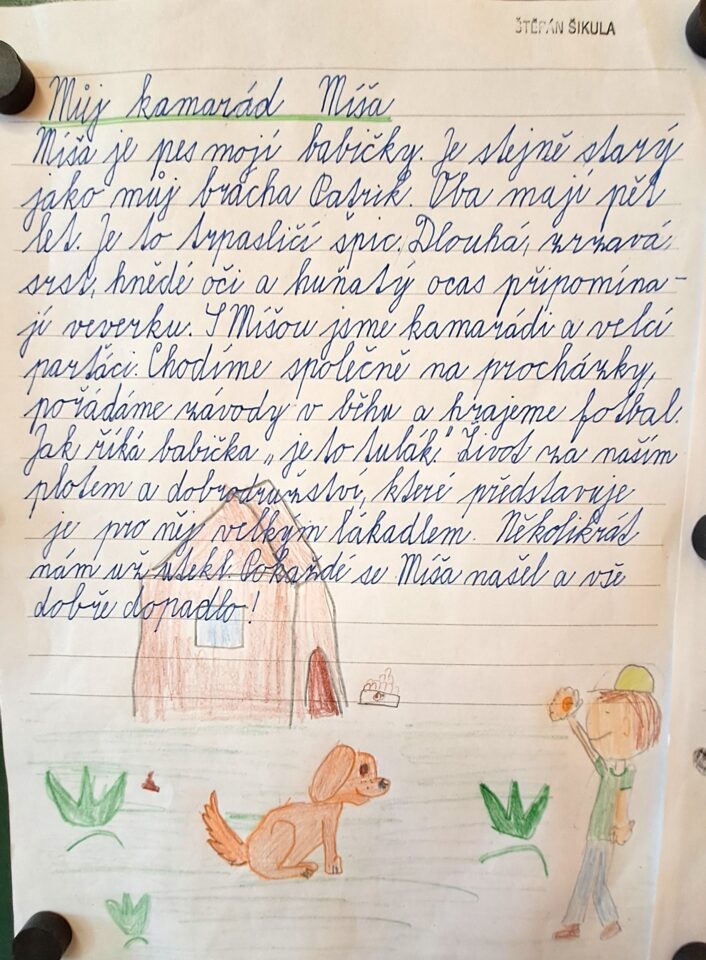 ŠTĚPÁN ŠIKULA
Můj kamarád Míša
Míša je pes mojí babičky. Je stejně starý
jako můj brácha Patrik. Oba mají pět
let. Je to trpasličí špic. Dlouhá, zrzavá
srst, hnědé oči a huňatý ocas připomína-
jí veverku. S Míšou jsme kamarádi a velcí
parťáci. Chodíme společně na procházky,
pořádáme závody v běhu a hrajeme fotbal.
Jak říká babička „je to tulák." Život za naším
plotem a dobrodružství, které představuje
je pro něj velkým lákadlem. Několikrát
nám už utekl. Pokaždé se Míša našel a vše
dobře dopadlo!